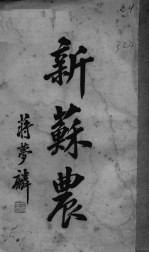 新蘇農
蔣夢麟